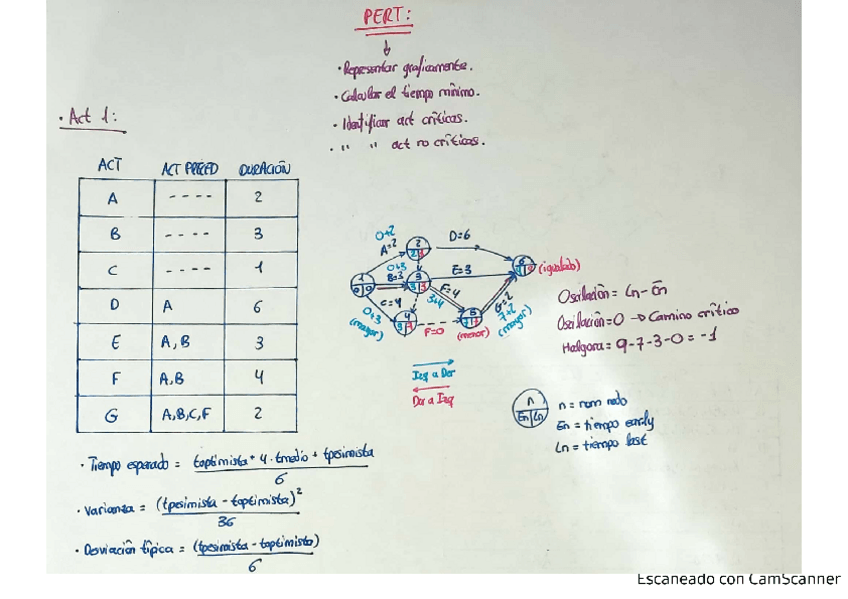 PERT:
· Representar graficamente.
· Calcular el tiempo mínimo.
· Identificar act críticas.
· " " act no críticas.
· Act 1:
ACT ACT PRECED DURACIÓN
A ---- 2
B ---- 3
C ---- 1
D A 6
E A, B 3
F A,B 4
G A,B,C,F 2
0+2
A=2
D=6
0+3
B=3
E=3
F=4
3+4
C=4
0+3
(mayor)
F=0
(menor)
G=2
7+2
(mayor)
(igualado)
Izq a Der
Der a Izq
Oscilación = Ln - En
Oscilación = 0 → Camino crítico
Holgura = 9-7-3-0 = -1
n
En Ln
n = num nodo
En = tiempo early
Ln = tiempo last
· Tiempo esperado = toptimista + 4 · tmedio + tpesimista
6
· Varianza = (tpesimista - toptimista)²
36
· Desviación típica = (tpesimista - toptimista)
6
Escaneado con CamScanner